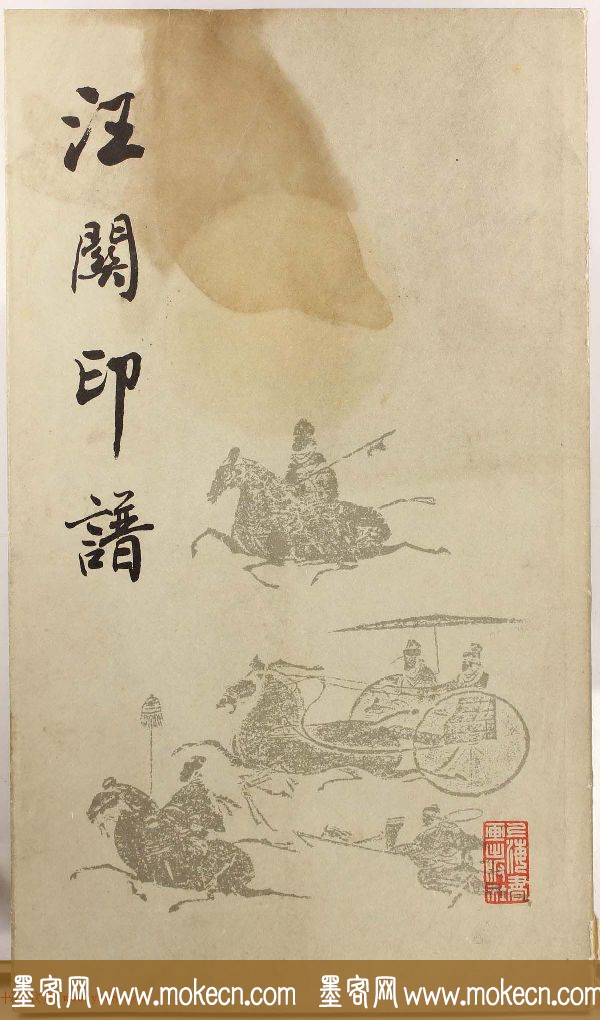 汪關印譜
上海書
畫出版社
墨客网 www.mokecn.com 墨客网 www.mokecn.com